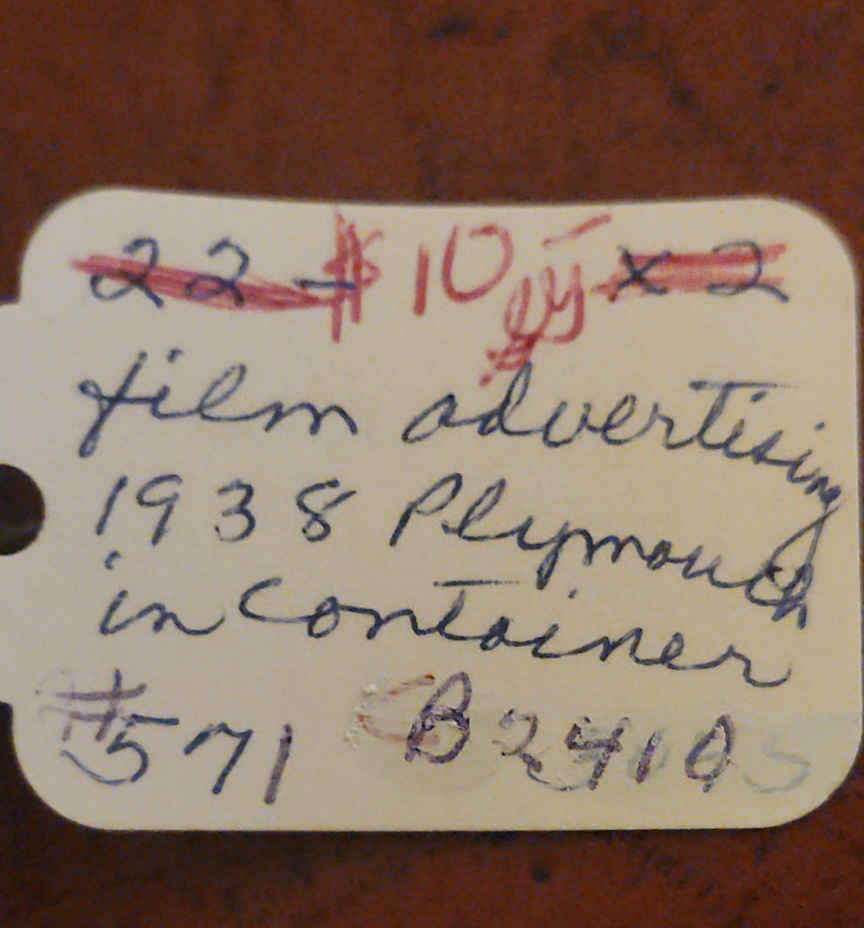 22 - $10 x 2
film advertising
1938 Plymouth
in container
#571 B2410